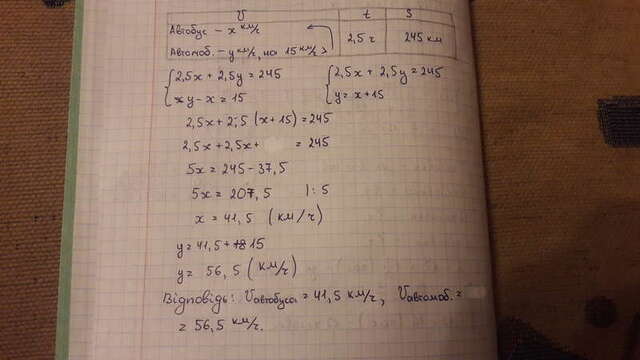 V t S
Автобус – x км/г 2,5 г 245 км
Автомоб. – y км/г, на 15 км/г >
{2,5x + 2,5y = 245 {2,5x + 2,5y = 245
y – x = 15 y = x + 15
2,5x + 2,5 (x + 15) = 245
2,5x + 2,5x + = 245
5x = 245 – 37,5
5x = 207,5 | : 5
x = 41,5 (км/г)
y = 41,5 + 15
y = 56,5 (км/г)
Відповідь: Vавтобуса = 41,5 км/г, Vавтомоб. =
= 56,5 км/г.